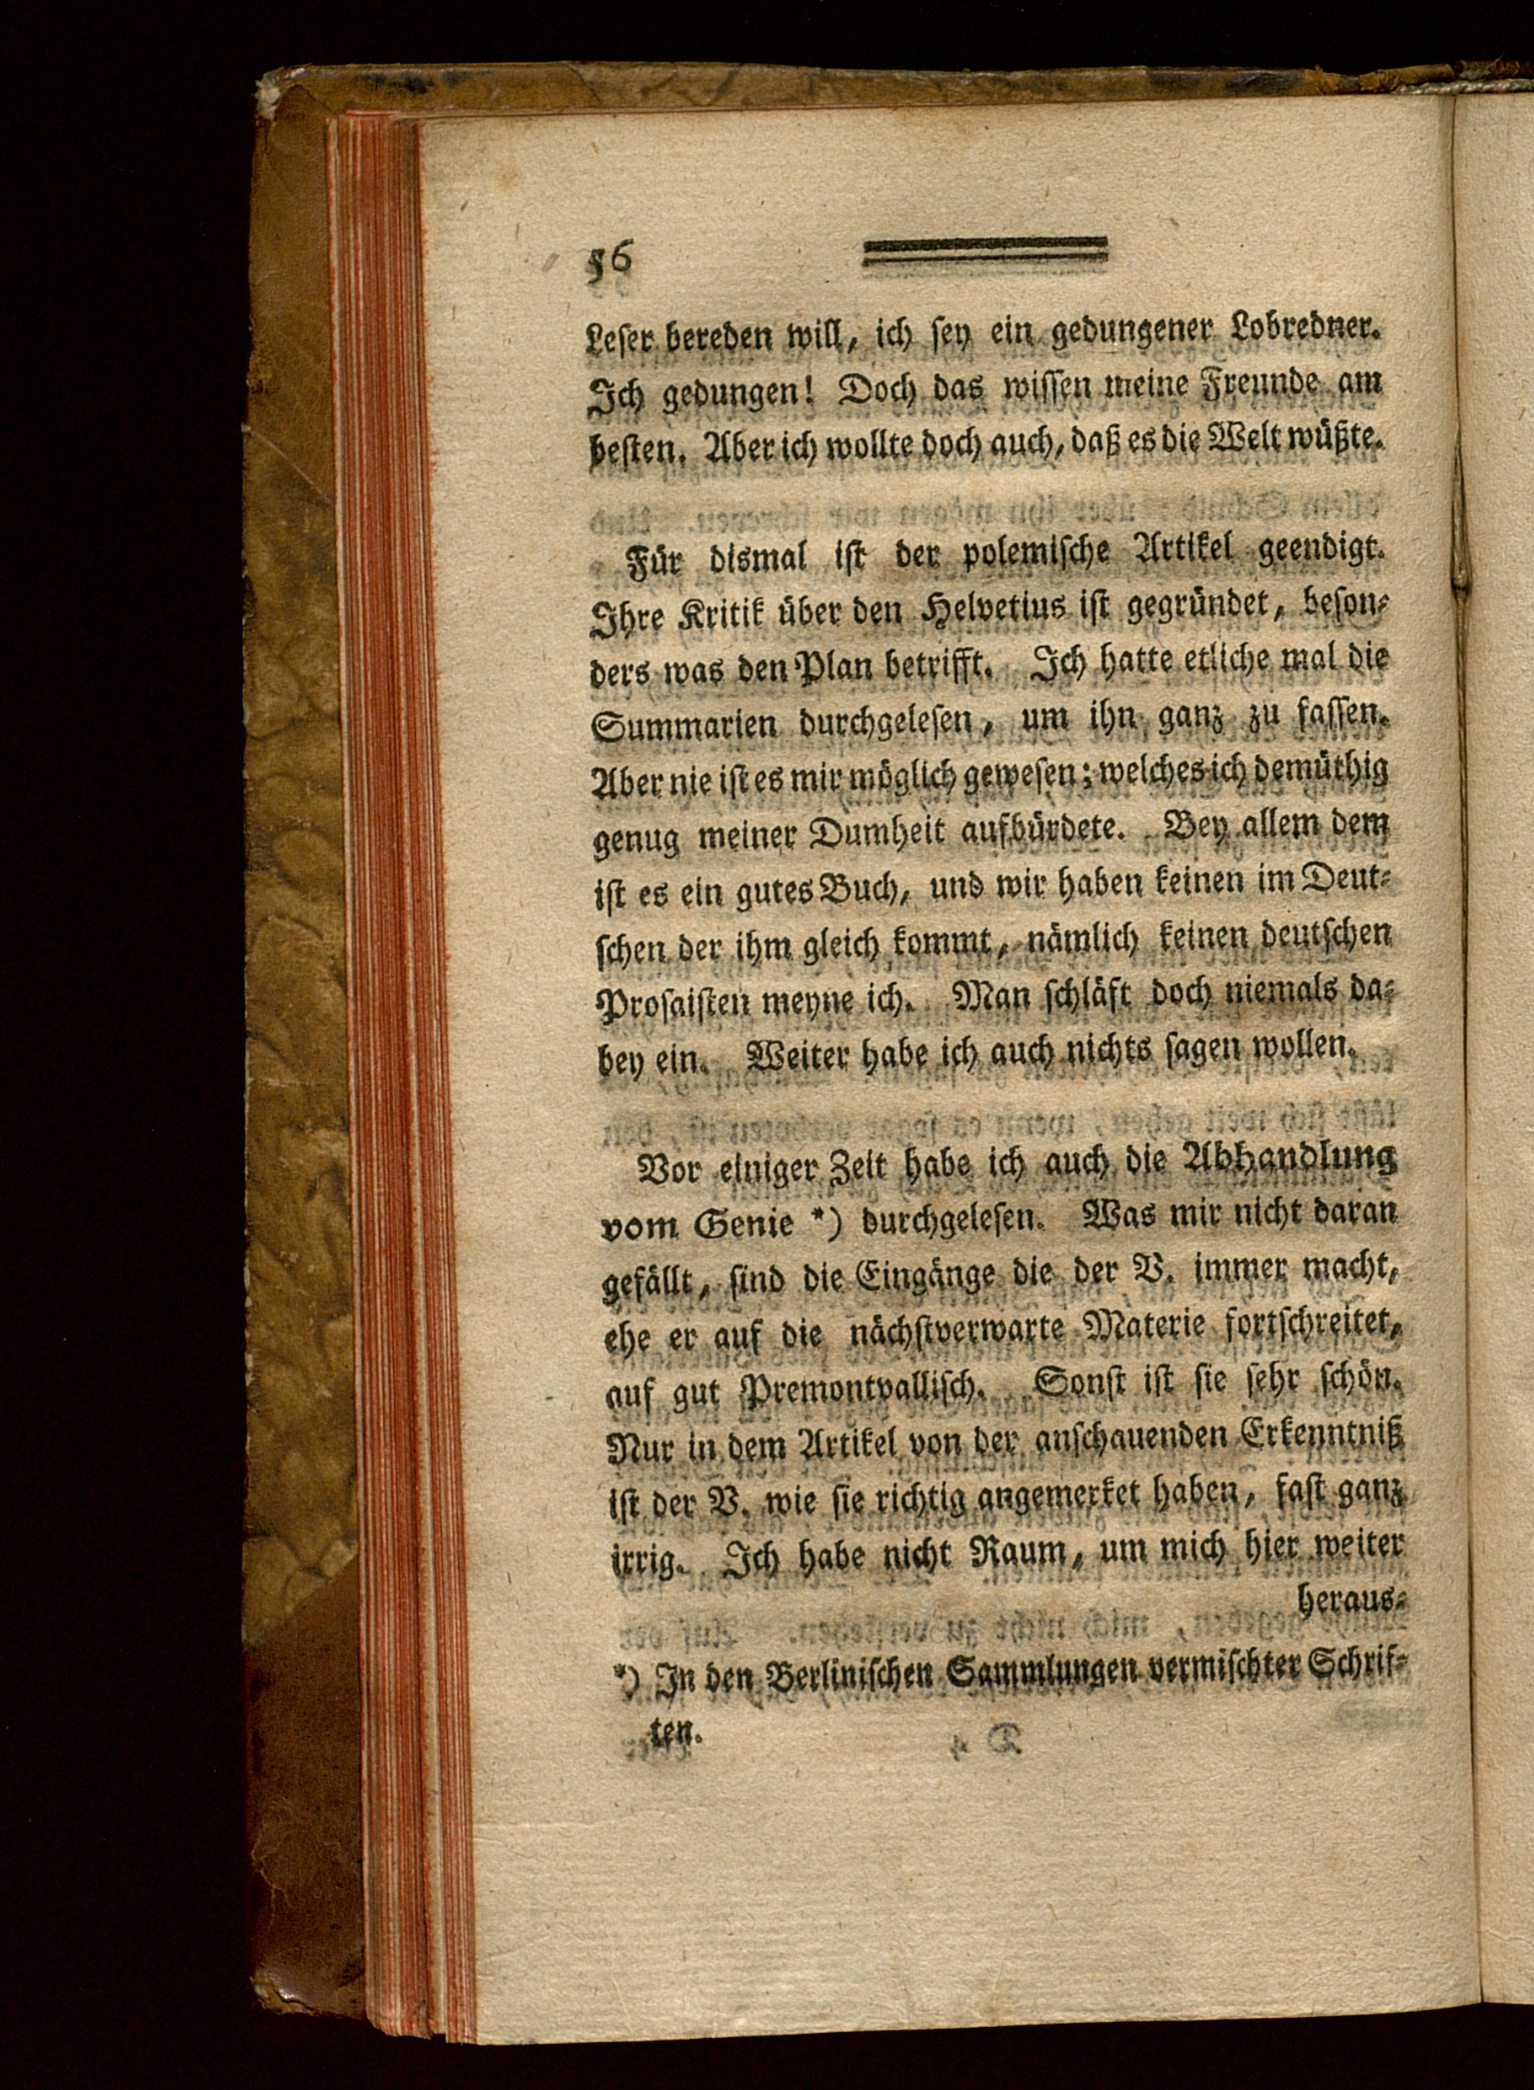 56
Leser bereden will, ich sey ein gedungener Lobredner.
Ich gedungen! Doch das wissen meine Freunde am
besten. Aber ich wollte doch auch, daß es die Welt wüßte.
Für dismal ist der polemische Artikel geendigt.
Ihre Kritik über den Helvetius ist gegründet, beson-
ders was den Plan betrifft. Ich hatte etliche mal die
Summarien durchgelesen, um ihn ganz zu fassen.
Aber nie ist es mir möglich gewesen; welches ich demüthig
genug meiner Dumheit aufbürdete. Bey allem dem
ist es ein gutes Buch, und wir haben keinen im Deut-
schen der ihm gleich kommt, nämlich keinen deutschen
Prosaisten meyne ich. Man schläft doch niemals da-
bey ein. Weiter habe ich auch nichts sagen wollen.
Vor einiger Zeit habe ich auch die Abhandlung
vom Genie *) durchgelesen. Was mir nicht daran
gefällt, sind die Eingänge die der V. immer macht,
ehe er auf die nächstverwarte Materie fortschreitet,
auf gut Premontvallisch. Sonst ist sie sehr schön.
Nur in dem Artikel von der anschauenden Erkenntniß
ist der V. wie sie richtig angemerket haben, fast ganz
irrig. Ich habe nicht Raum, um mich hier weiter
heraus-
*) In den Berlinischen Sammlungen vermischter Schrif-
ten.